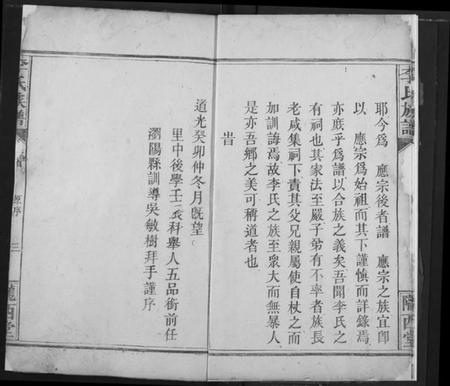 李氏族譜
隴西堂
耶今為 應宗後者譜 應宗之族宜卽
以 應宗為始祖而其下謹慎而詳錄焉
亦庶乎為譜以合族之義矣吾聞李氏之
有祠也其家法至嚴子弟有不率者族長
老咸集祠下責其父兄親屬使自杖之而
加訓誨焉故李氏之族至衆大而無暴人
是亦吾鄉之美可稱道者也
旹
道光癸卯仲冬月既望
里中後學壬辰科舉人五品銜前任
瀏陽縣訓導吳敏樹拜手謹序
李氏族譜
原序
三
隴西堂